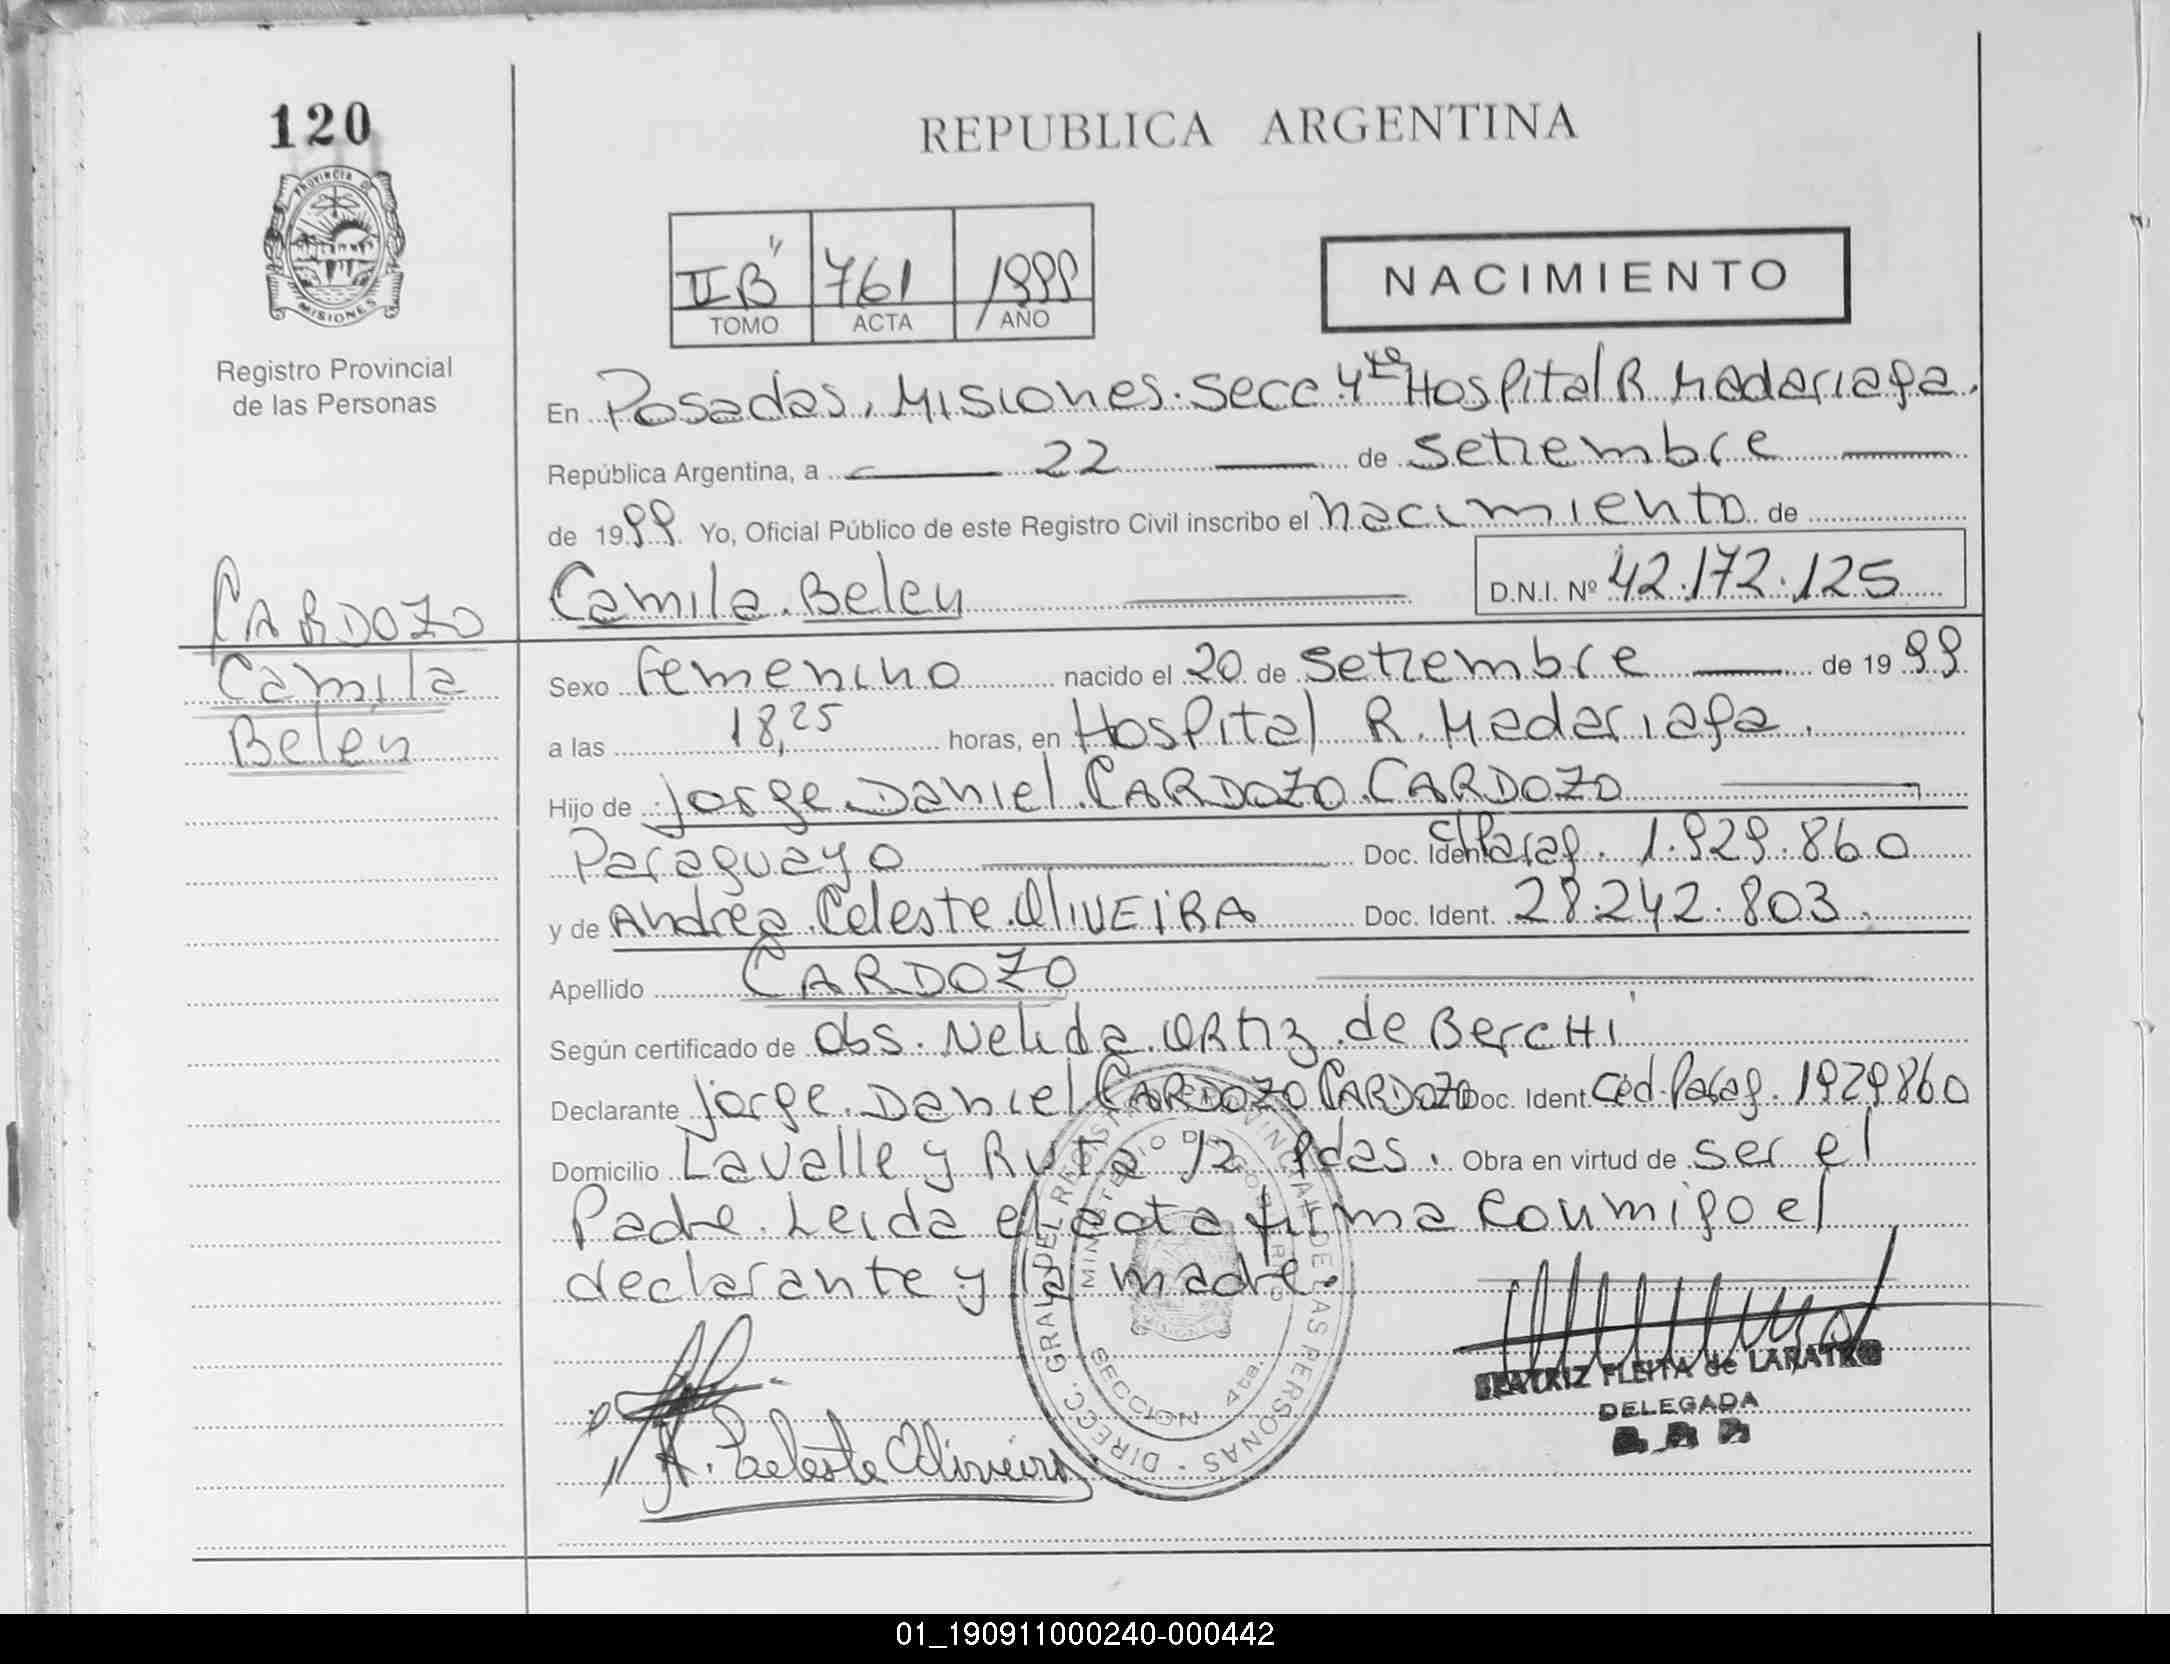 120
PROVINCIA DE
MISIONES
Registro Provincial
de las Personas
CARDOZO
Camila
Belén
REPUBLICA ARGENTINA
II "B" 761 1999
TOMO ACTA AÑO
NACIMIENTO
En Posadas, Misiones. Secc. 4ta Hospital R. Madariaga.
República Argentina, a 22 de Setiembre
de 1999. Yo, Oficial Público de este Registro Civil inscribo el nacimiento de
Camila Belen D.N.I. Nº 42.172.125
Sexo femenino nacido el 20 de Setiembre de 1999
a las 18,25 horas, en Hospital R. Madariaga.
Hijo de Jorge Daniel CARDOZO CARDOZO
Paraguayo Doc. Ident. Parag. 1.929.860
y de Andrea Celeste OLIVEIRA Doc. Ident. 28.242.803.
Apellido CARDOZO
Según certificado de Obs. Nelida ORtiz de BercHi
Declarante Jorge Daniel CARDOZO CARDOZO Doc. Ident. Céd. Parag. 1929860
Domicilio Lavalle y Ruta 12 Pdas. Obra en virtud de ser el
Padre. Leida el acta firma conmigo el
declarante y la madre.
DIRECC. GRAL. DEL REGISTRO PROVINCIAL DE LAS PERSONAS
MINISTERIO DE GOBIERNO
SECCION 4ta.
A. Celeste Oliveira
BEATRIZ FLEITA de LARATRO
DELEGADA
01_190911000240-000442